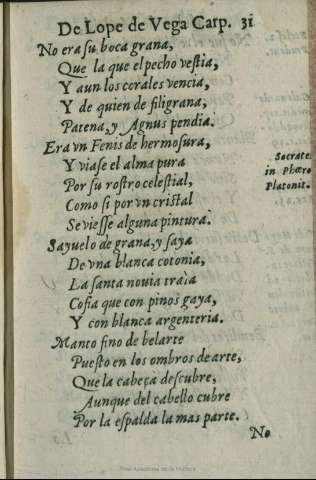 De Lope de Vega Carp. 31
No era ſu boca grana,
Que la que el pecho veſtia,
Y aun los corales vencia,
Y de quien de filigrana,
Patena, y Agnus pendia.
Era vn Fenis de hermoſura,
Y viaſe el alma pura
Por ſu roſtro celeſtial,
Como ſi por vn criſtal
Se vieſſe alguna pintura.
Socrate.
in Phæro
Platonit.
Sayuelo de grana, y ſaya
De vna blanca cotonia,
La ſanta nouia traìa
Cofia que con pinos gaya,
Y con blanca argenteria.
Manto fino de belarte
Pueſto en los ombros de arte,
Que la cabeça deſcubre,
Aunque del cabello cubre
Por la eſpalda la mas parte.
No
Real Academia de la Historia